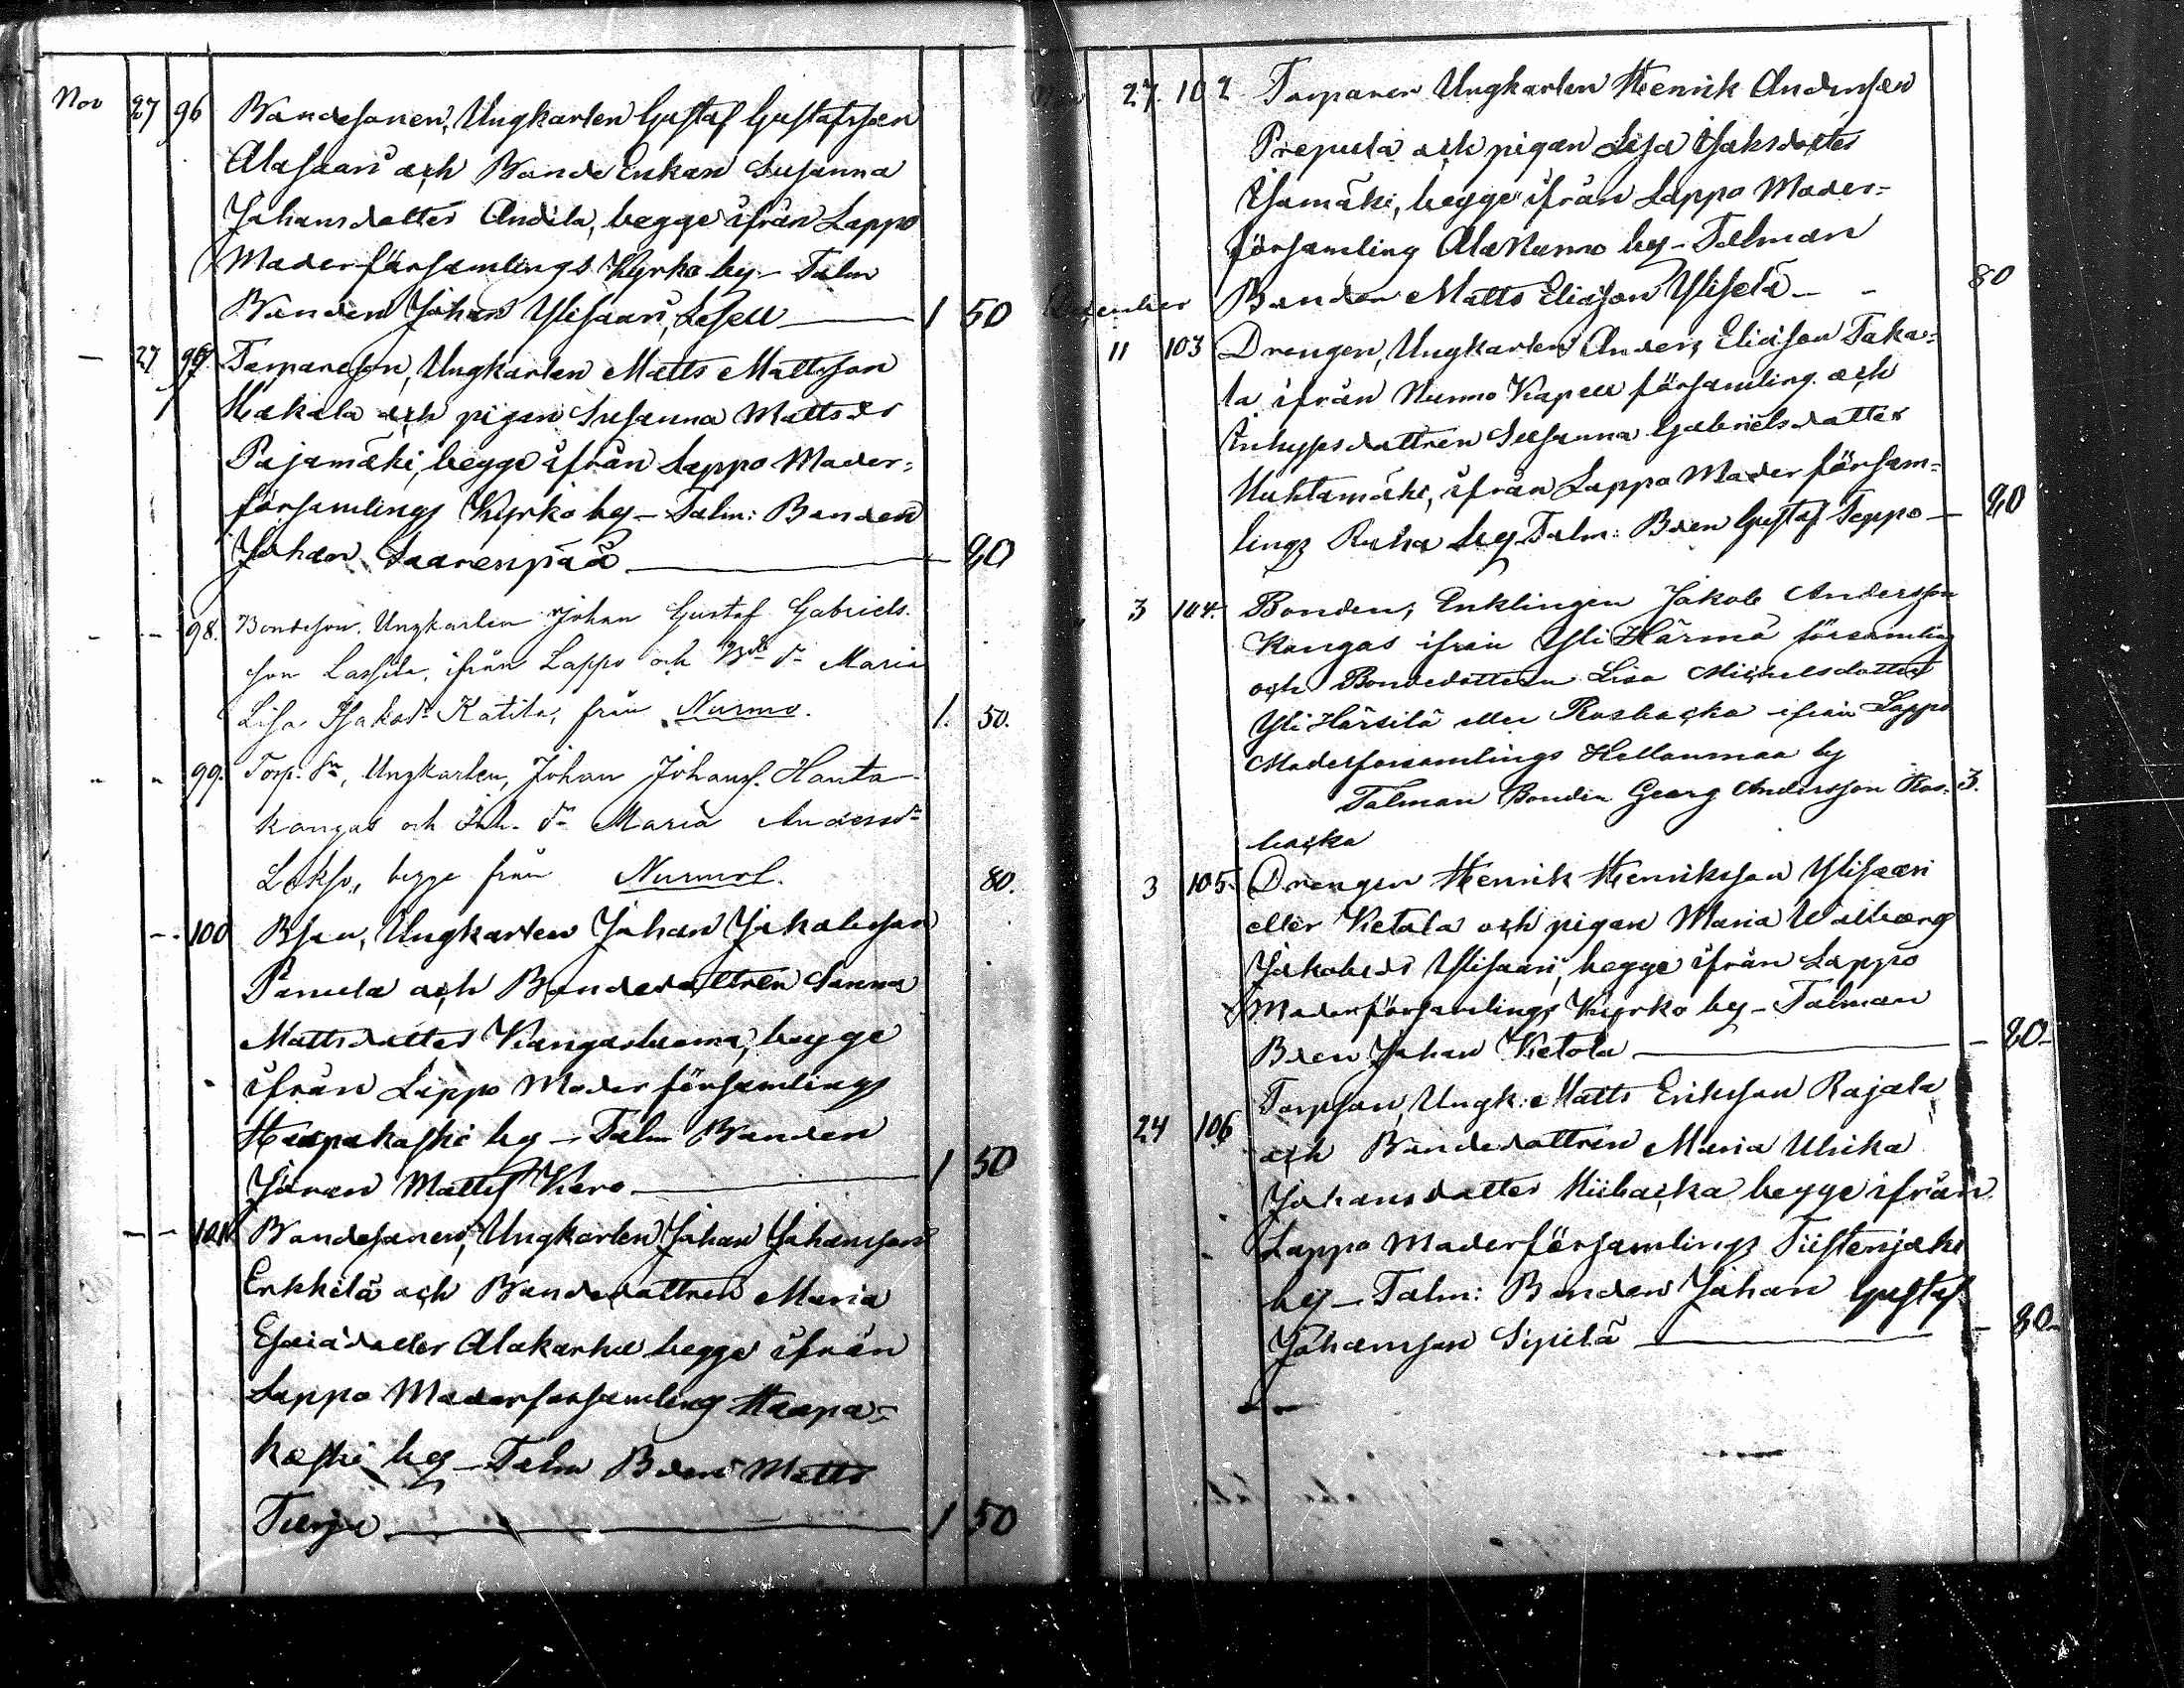 Nov 27 96 Bondesonen, Ungkarlen Gustaf Gustafsson
Alasaari och Bonde Enkan Susanna
Johansdotter Andila, begge ifrån Lappo
Moderförsamlings Kyrko by – Talm
Bonden Johan Ylisaari, Lesell — 1 50
— 27 97 Torpareson, Ungkarlen Matts Mattsson
Hakala och pigan Susanna Mattsdr
Pajamäki, begge ifrån Lappo Moder-
församlings Kyrko by – Talm: Bonden
Johan Saarenpää — 80
- - 98. Bondeson. Ungkarlen Johan Gustaf Gabriels-
son Lassila, ifrån Lappo och Bde dr Maria
Lisa Isaksdr Katila, från Nurmo. 1. 50.
- - 99. Torp. Sn, Ungkarlen, Johan Johanss. Hanta-
kangas och Inh. dr Maria Andersdr
Lakso, begge från Nurmo. 80.
- - 100 Bson, Ungkarlen Johan Jakobsson
Panula och Bondedottren Sanna
Mattsdotter Kangasluoma, begge
ifrån Lappo Moderförsamlings
Haapakoski by – Talm Bonden
Jöran Matts Karo — 1 50
- - 101 Bondesonen, Ungkarlen Johan Johansson
Erkkilä och Bondedottren Maria
Esaiædotter Alakarhu begge ifrån
Lappo Moderforsamling Haapa-
koski by – Talm Bden Matts
Turja — 1 50
27. 102 Torparen Ungkarlen Henrik Andersson
Prepula och pigan Lisa Isaksdotter
Isomäki, begge ifrån Lappo Moder-
församling Ala Nurmo by – Talman
Bonden Matts Eliasson Yliselä – - 80
December
11 103 Drengen, Ungkarlen Anders Eliasson Taka-
la ifrån Nurmo Kapell församling och
Inhysesdottren Susanna Gabrielsdotter
Huhtamäki, ifrån Lappo Moder församl-
lings Ruha by Talm: Bden Gustaf Teppo — 80
" 3 104. Bonden, Enklingen Jakob Andersson
Kangas ifrån Yli Härmä församling
och Bondedottern Lisa Michelsdotter
Yli Härsilä eller Rosbacka ifrån Lappo
Moderforsamlings Hellanmaa by
Talman Bonden Georg Andersson Ros- 3.
backa
3 105. Drengen Henrik Henriksson Ylisaari
eller Kietola och pigan Maria Walborg
Jakobsdr Ylisaari, begge ifrån Lappo
Moderförsamlings Kyrko by – Talman
Bden Johan Kietola — - 80 -
24 106 Torpson, Ungk: Matts Eriksson Rajala
och Bondedottren Maria Ulrika
Johansdotter Hiibacka begge ifrån
Lappo Moderförsamlings Tiistenjoki
by – Talm: Bonden Johan Gustaf
Johansson Sipilä — - 80 -